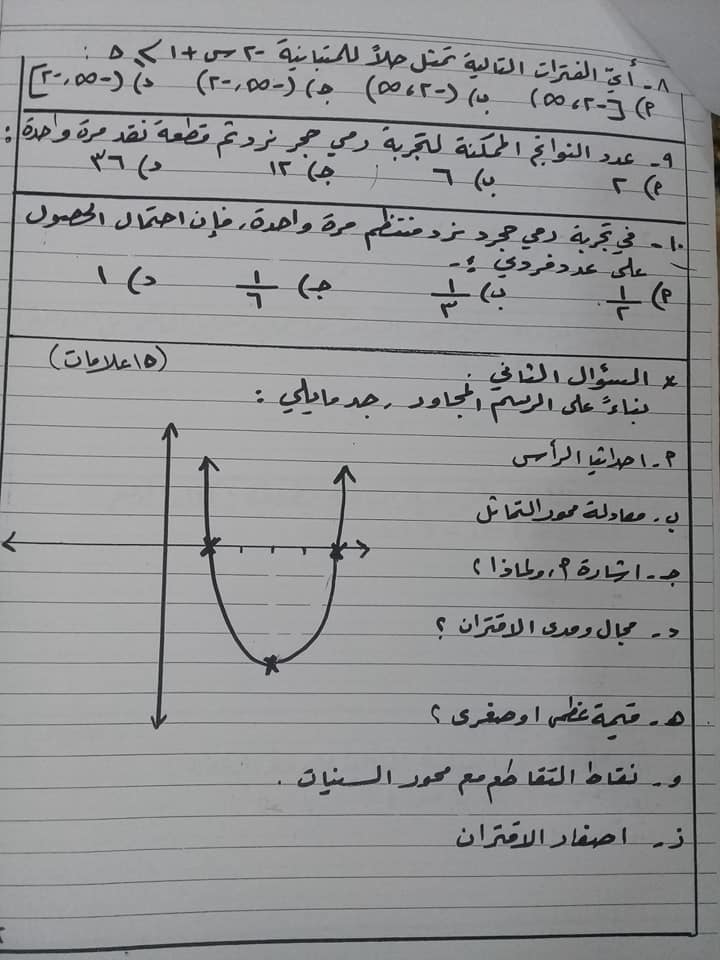 ٨- أيّ الفترات التالية تمثل حلاً للمتباينة -٢س + ١ ⩽ ٥ :
أ) [-٢، ∞) ب) (-٢، ∞) جـ) (-∞، -٢) د) (-∞، -٢]
٩- عدد النواتج الممكنة لتجربة رمي حجر نرد ثم قطعة نقد مرة واحدة :
أ) ٢ ب) ٦ جـ) ١٢ د) ٣٦
١٠- في تجربة رمي حجرد نرد منتظم مرة واحدة، فإن احتمال الحصول
على عدد فردي :-
أ) ١/٢ ب) ١/٣ جـ) ١/٦ د) ١
* السؤال الثاني (١٥ علامات)
بناءً على الرسم المجاور، جد مايلي :
أ- احداثيا الرأس
ب- معادلة محور التماثل
جـ- اشارة أ، ولماذا ؟
د- مجال ومدى الاقتران ؟
هـ- قيمة عظمى او صغرى ؟
و- نقاط التقاطع مع محور السنيات .
ز- اصفار الاقتران